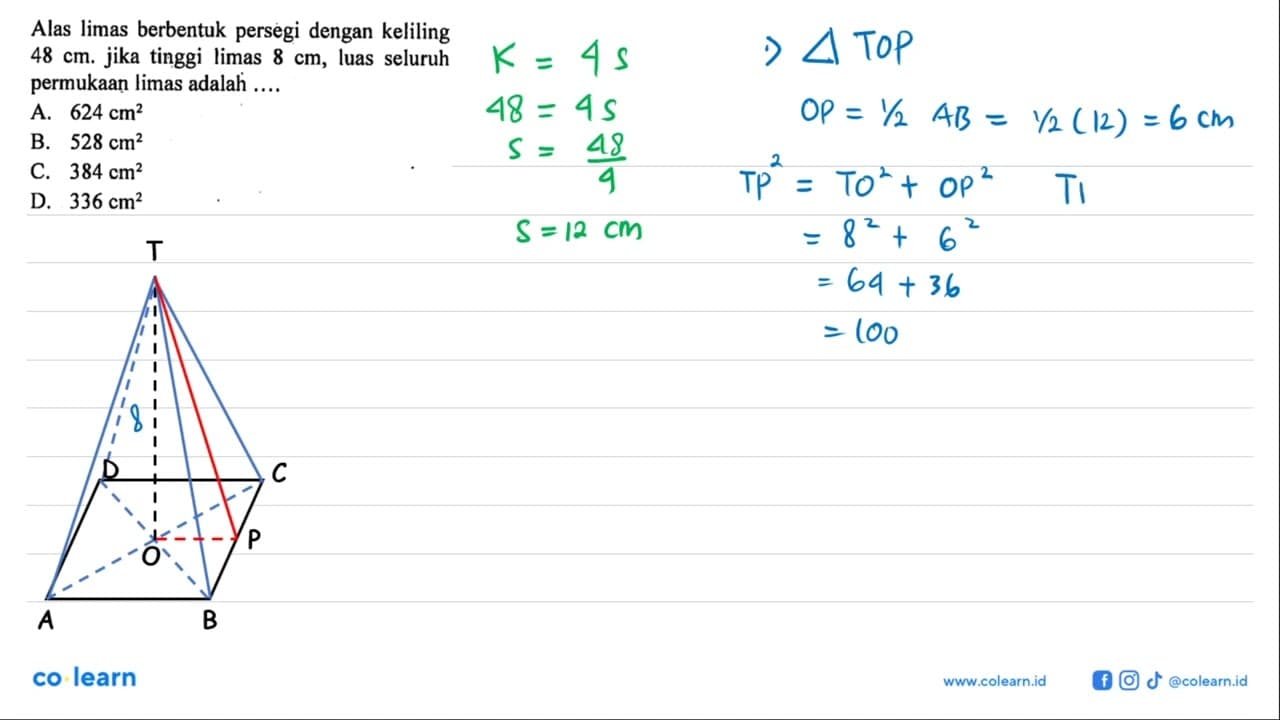 Alas limas berbentuk persegi dengan keliling
48 cm. jika tinggi limas 8 cm, luas seluruh
permukaan limas adalah ....
A. 624 cm²
B. 528 cm²
C. 384 cm²
D. 336 cm²
K = 4s
48 = 4s
s = 48/4
s = 12 cm
△ TOP
OP = 1/2 AB = 1/2 (12) = 6 cm
TP² = TO² + OP² T
= 8² + 6²
= 64 + 36
= 100
T
8
D
C
O
P
A
B
co learn
www.colearn.id
@colearn.id